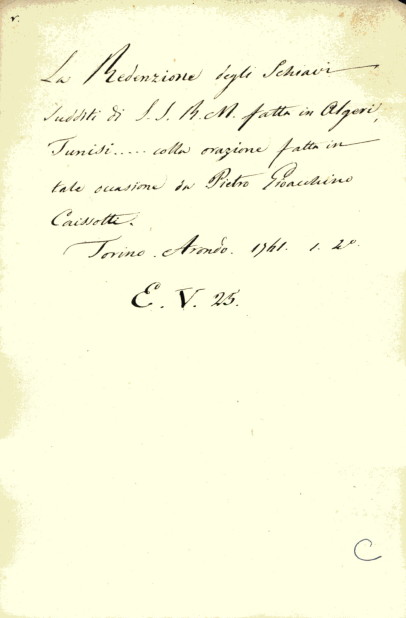 r.
La Redenzione degli Schiavi
Sudditi di S. S. R. M. fatta in Algeri,
Tunisi..... colla orazione fatta in
tale occasione da Pietro Gioacchino
Caissotti.
Torino. Arondo. 1761. 1. 2º.
E. V. 25.
C